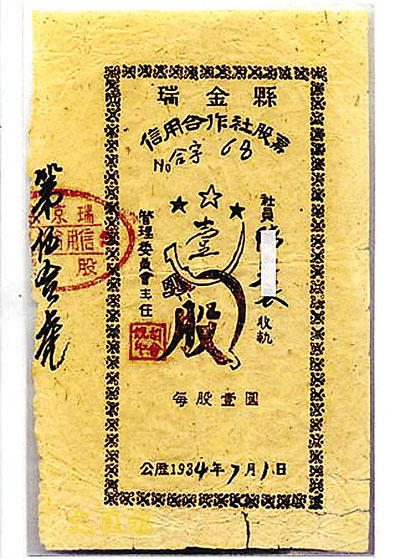 瑞金縣
信用合作社股票
No 合字 68
社員
收執
壹
股
管理委員會主任
每股壹圓
公歷1934年7月1日
第伍壹號
瑞
信用
股